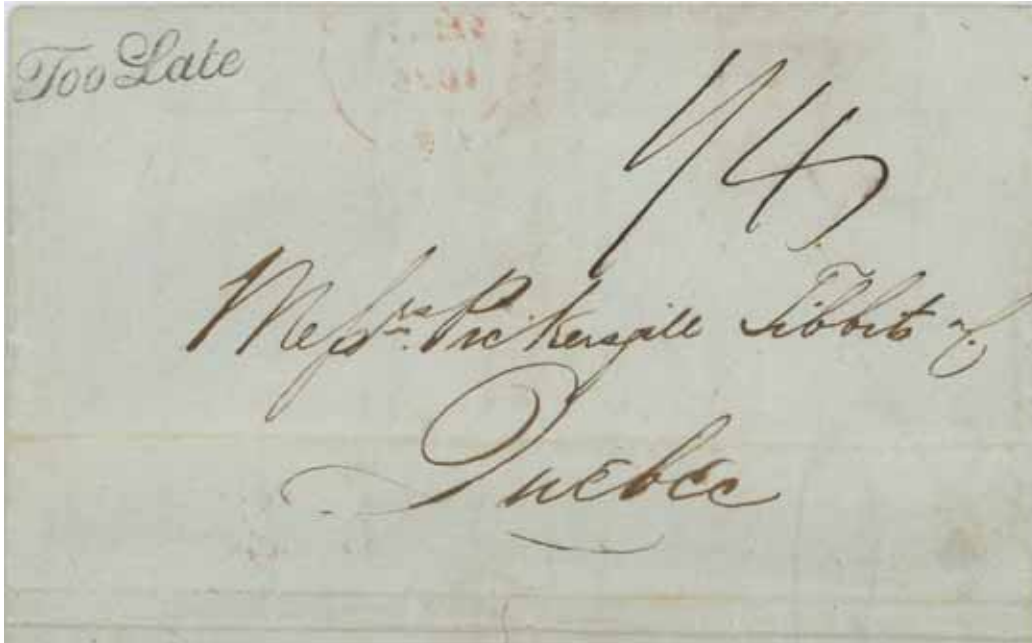 Too Late
1/4
Messrs. Pickersgill Tibbits &c.
Quebec